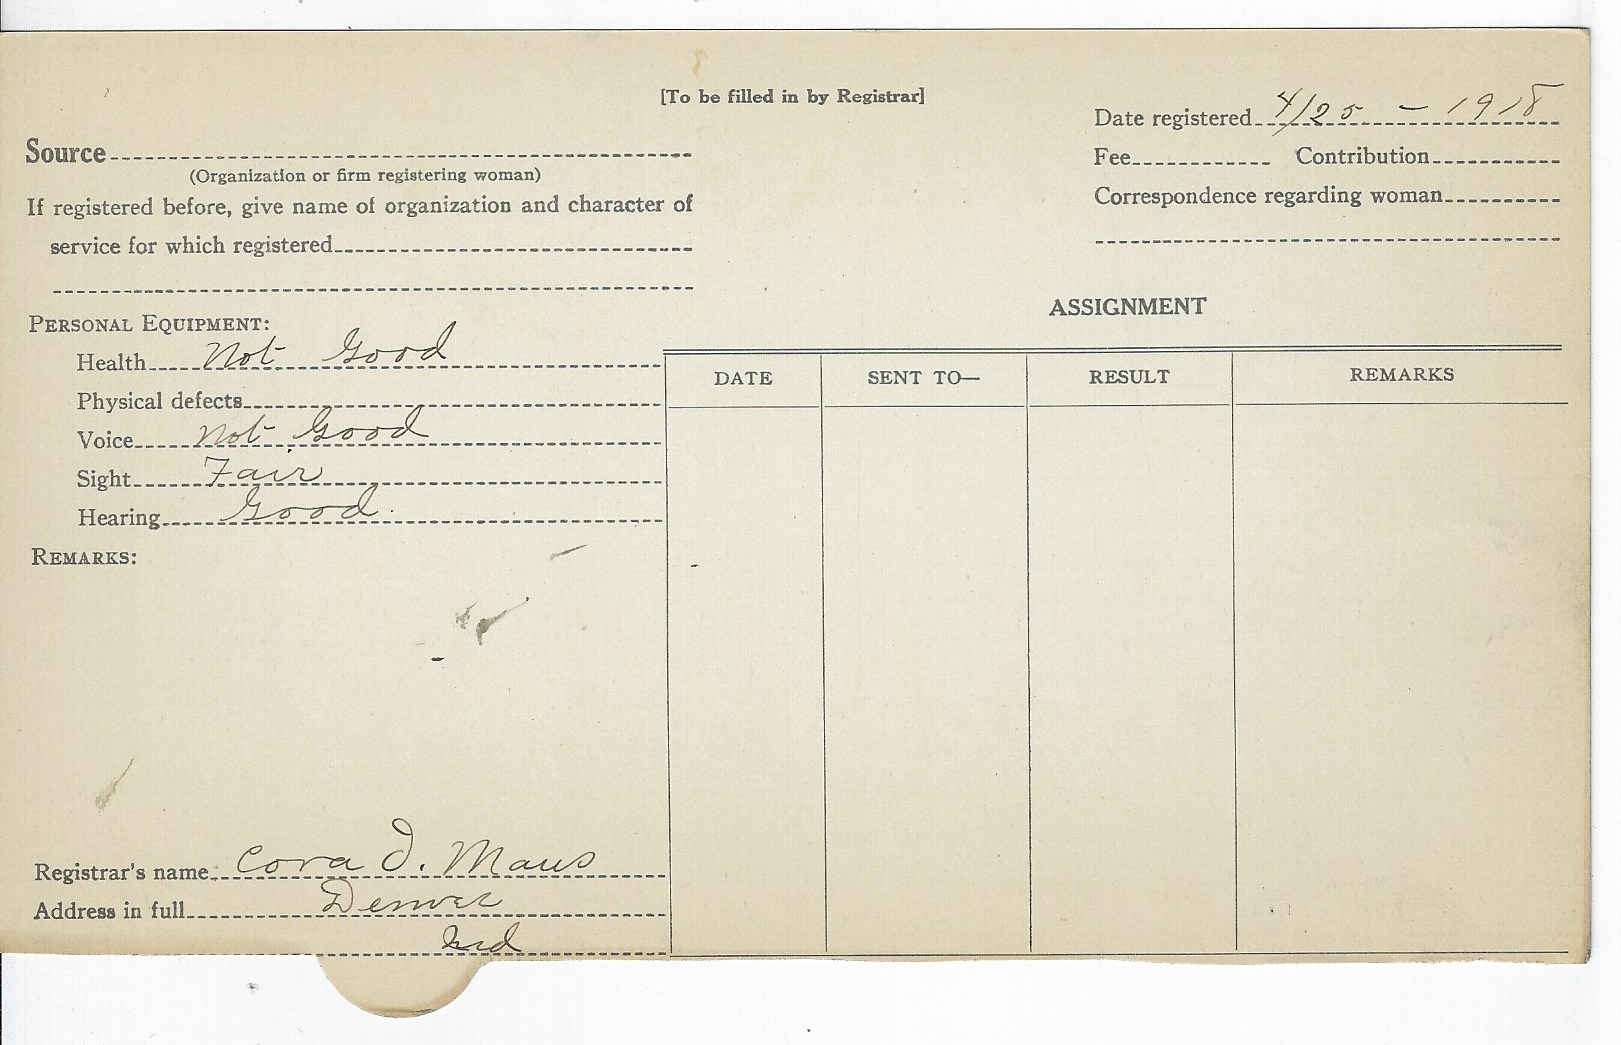 [To be filled in by Registrar]
Date registered 4/25 - 1918
Source
Fee Contribution
(Organization or firm registering woman)
Correspondence regarding woman
If registered before, give name of organization and character of
service for which registered
ASSIGNMENT
PERSONAL EQUIPMENT:
Health Not Good
DATE SENT TO— RESULT REMARKS
Physical defects
Voice Not Good
Sight Fair
Hearing Good.
REMARKS:
Registrar's name Cora D. Maus
Address in full Denver
Ind